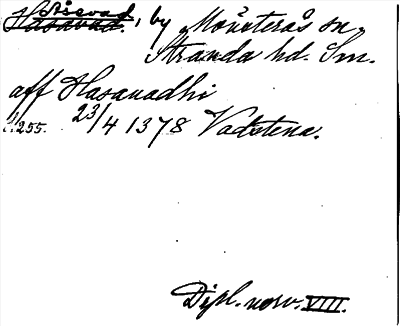 Hasavad., by Mönsterås sn
Åsevad
Stranda hd. Sm.
aff Hasauadhi
s. 255. 23/4 1378 Vadstena.
Dipl. norv. VIII.